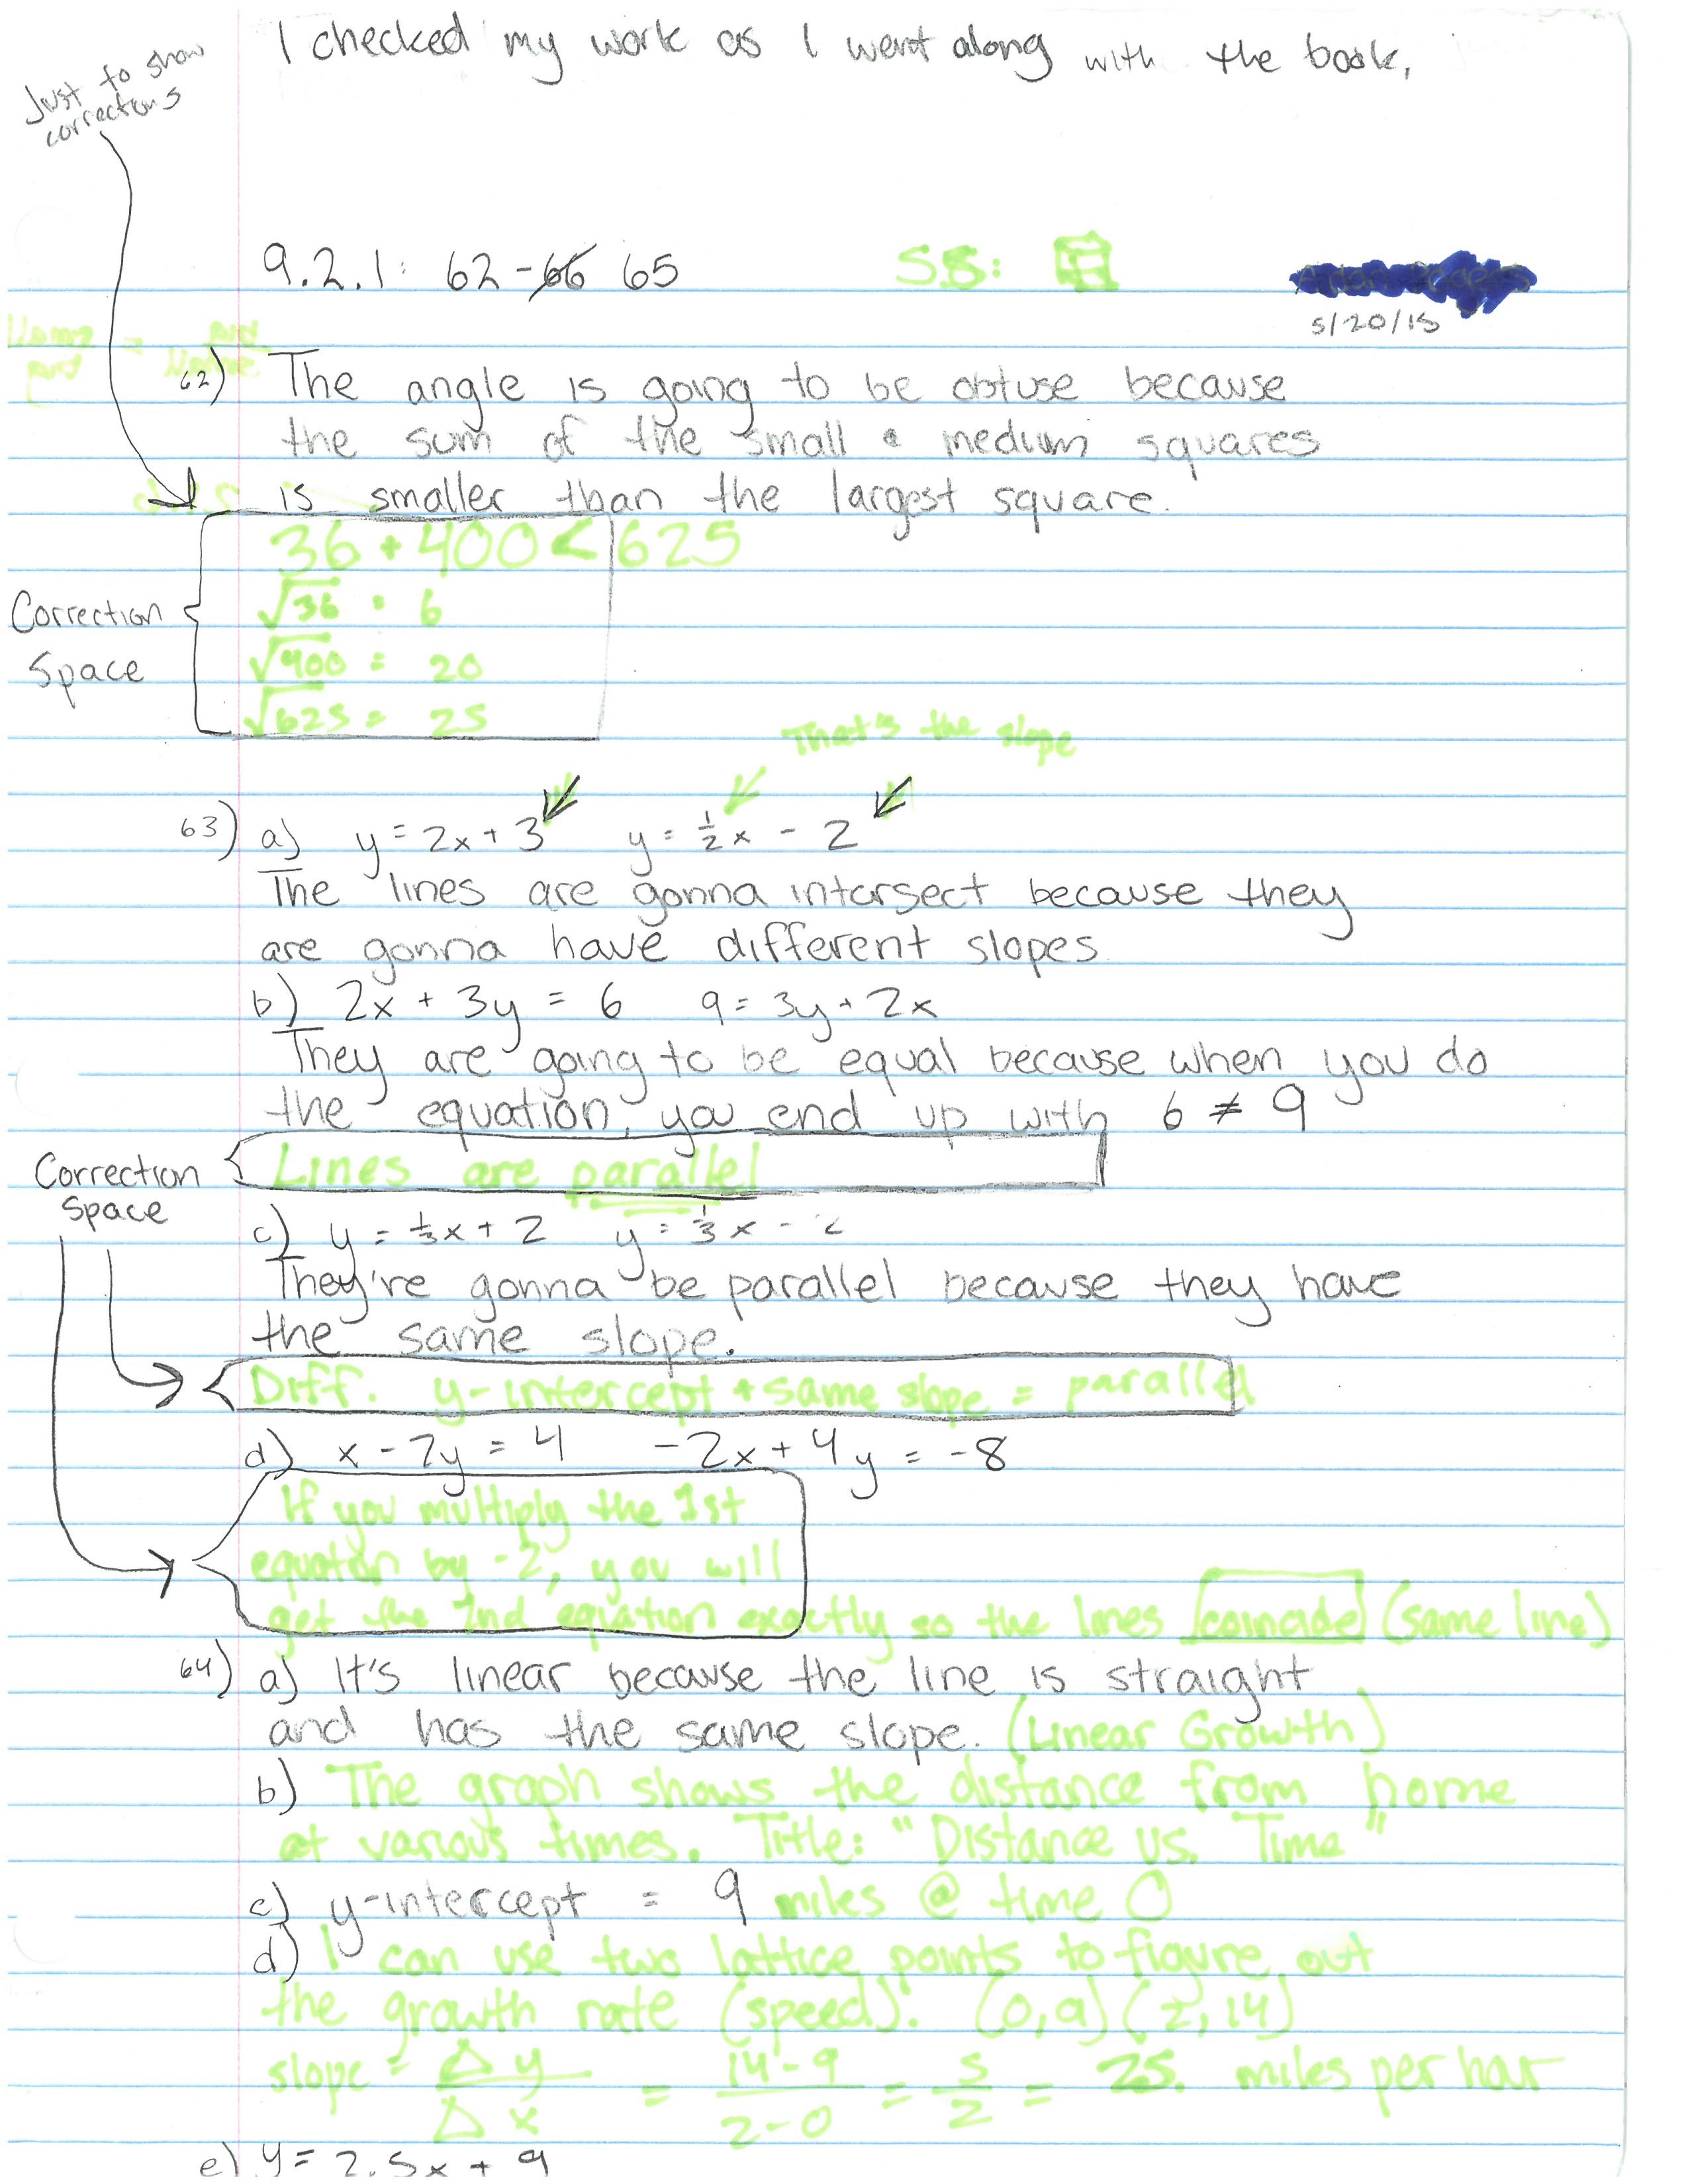 I checked my work as I went along with the book.
Just to show
corrections
9.2.1: 62-66 65
S.S:
5/20/15
62) The angle is going to be obtuse because
the sum of the small + medium squares
is smaller than the largest square.
Correction
Space
36 + 400 < 625
√36 = 6
√400 = 20
√625 = 25
That's the slope
63) a) y = 2x + 3 y = 1/2 x - 2
The lines are gonna intersect because they
are gonna have different slopes
b) 2x + 3y = 6 9 = 3y + 2x
They are going to be equal because when you do
the equation, you end up with 6 ≠ 9
Correction
Space
Lines are parallel
c) y = 1/3 x + 2 y = 1/3 x - 2
They're gonna be parallel because they have
the same slope.
Diff. y-intercept + same slope = parallel
d) x - 2y = 4 -2x + 4y = -8
If you multiply the 1st
equation by -2, you will
get the 2nd equation exactly so the lines coincide (same line)
64) a) It's linear because the line is straight
and has the same slope. (Linear Growth)
b) The graph shows the distance from home
at various times. Title: "Distance vs. Time"
c) y-intercept = 9 miles @ time 0
d) I can use two lattice points to figure out
the growth rate (speed). (0,9) (2,14)
slope = Δy/Δx = 14-9/2-0 = 5/2 = 2.5. miles per hour
e) y = 2.5x + 9